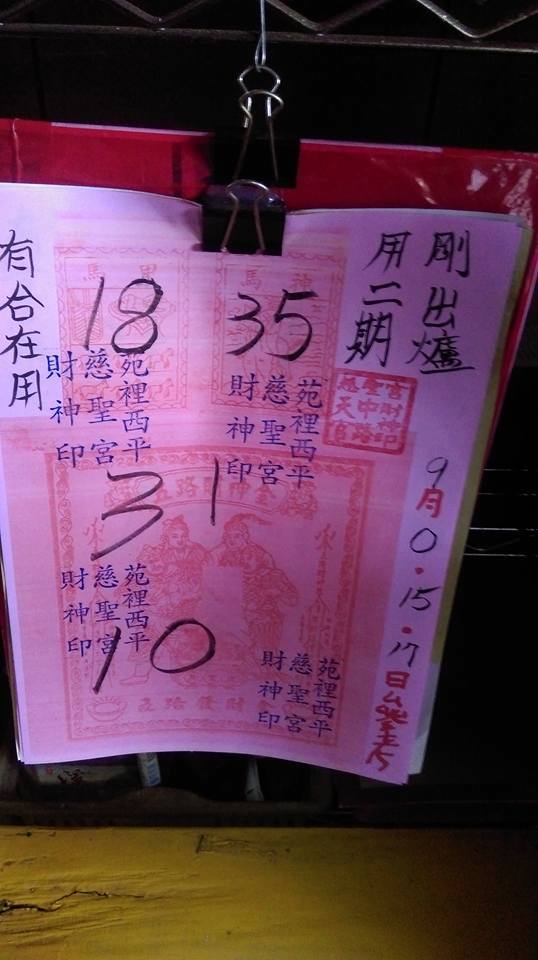 剛出爐
用二期
有合在用
18 35
苑裡西平
慈聖宮
財神印
苑裡西平
慈聖宮
財神印
31
苑裡西平
慈聖宮
財神印
10
苑裡西平
慈聖宮
財神印
9月0.15.17日